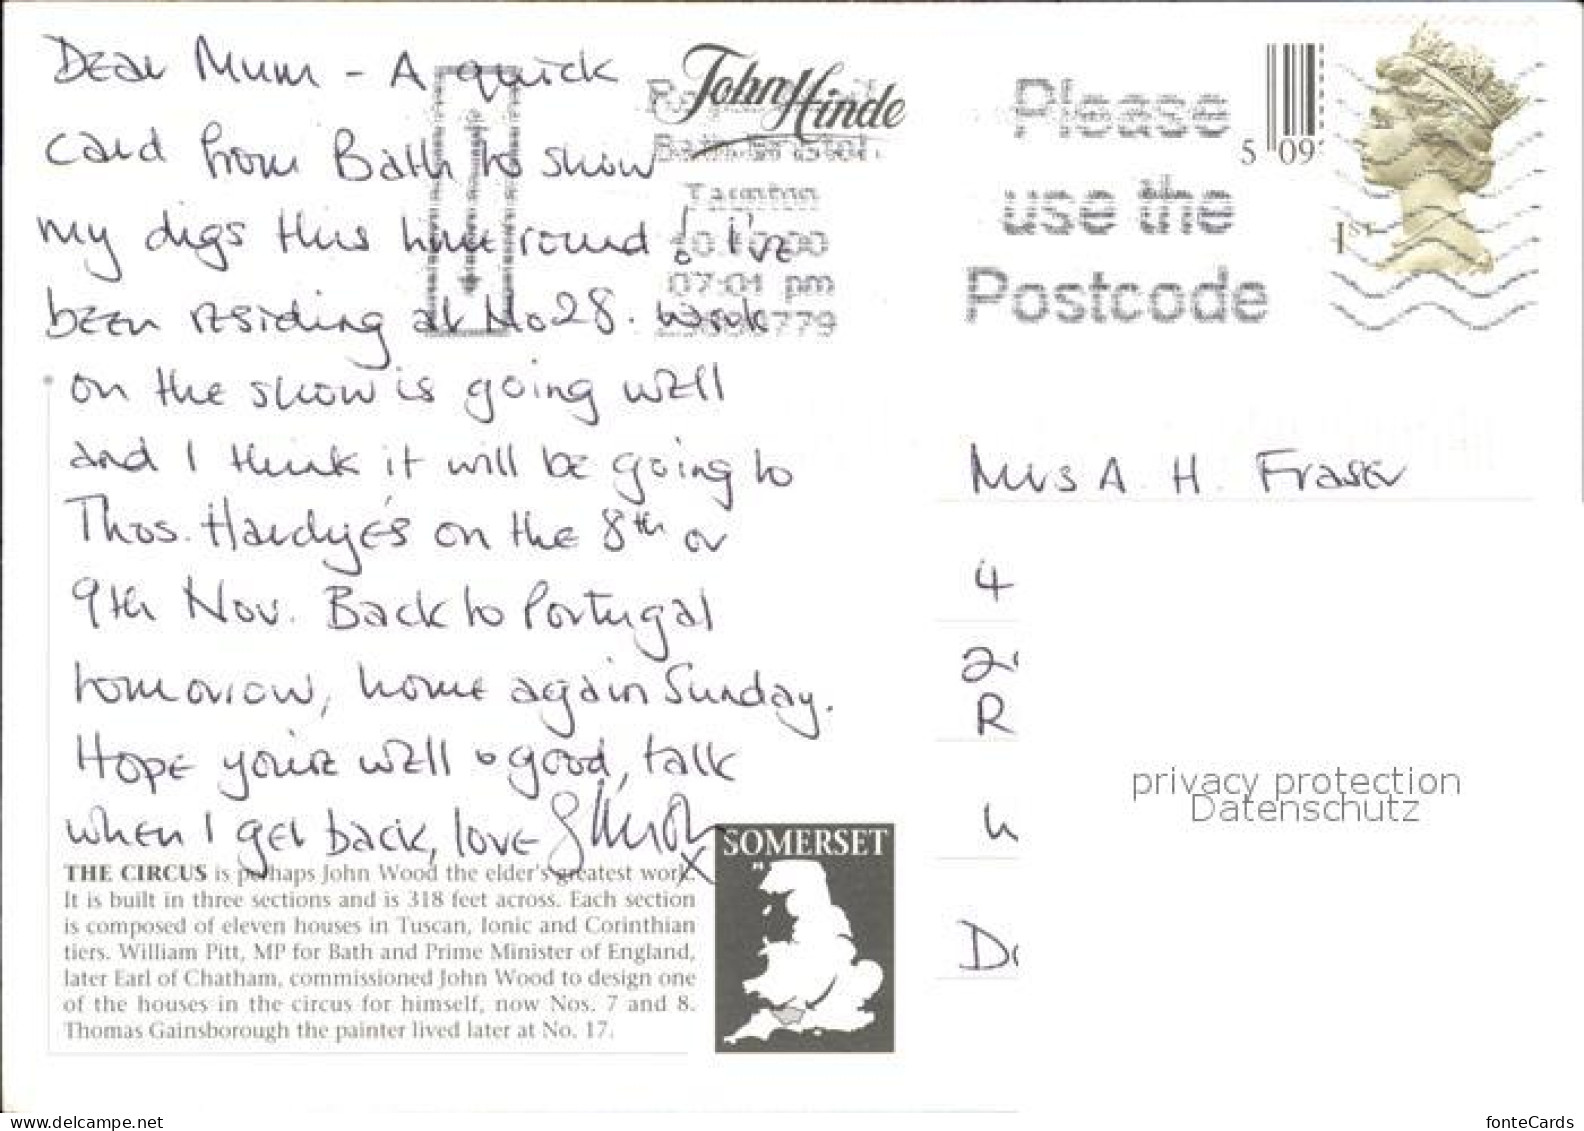 Dear Mum - A quick
card from Bath to show
my digs this time round! I've
been residing at No 28. Work
on the show is going well
and I think it will be going to
Thos. Hardye's on the 8th or
9th Nov. Back to Portugal
tomorrow, home again Sunday.
Hope you're well & good, talk
when I get back, love
x
THE CIRCUS is perhaps John Wood the elder's greatest work.
It is built in three sections and is 318 feet across. Each section
is composed of eleven houses in Tuscan, Ionic and Corinthian
tiers. William Pitt, MP for Bath and Prime Minister of England,
later Earl of Chatham, commissioned John Wood to design one
of the houses in the circus for himself, now Nos. 7 and 8.
Thomas Gainsborough the painter lived later at No. 17.
SOMERSET
John Hinde
Taunton
07:01 pm
Please
use the
Postcode
5 09
1ST
Mrs A. H. Fraser
4
R
privacy protection
Datenschutz
www.delcampe.net
fonteCards